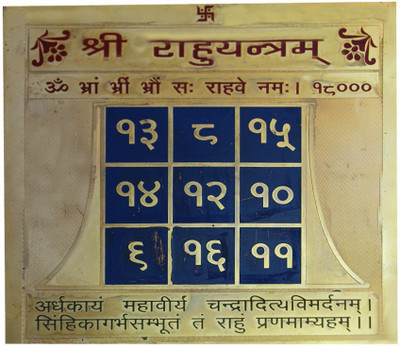 श्री राहुयन्त्रम्
ॐ भ्रां भ्रीं भ्रौं सः राहवे नमः। १८०००
१३ ८ १५
१४ १२ १०
९ १६ ११
अर्धकायं महावीर्य चन्द्रादित्यविमर्दनम्।
सिंहिकागर्भसम्भूतं तं राहुं प्रणमाम्यहम्।।